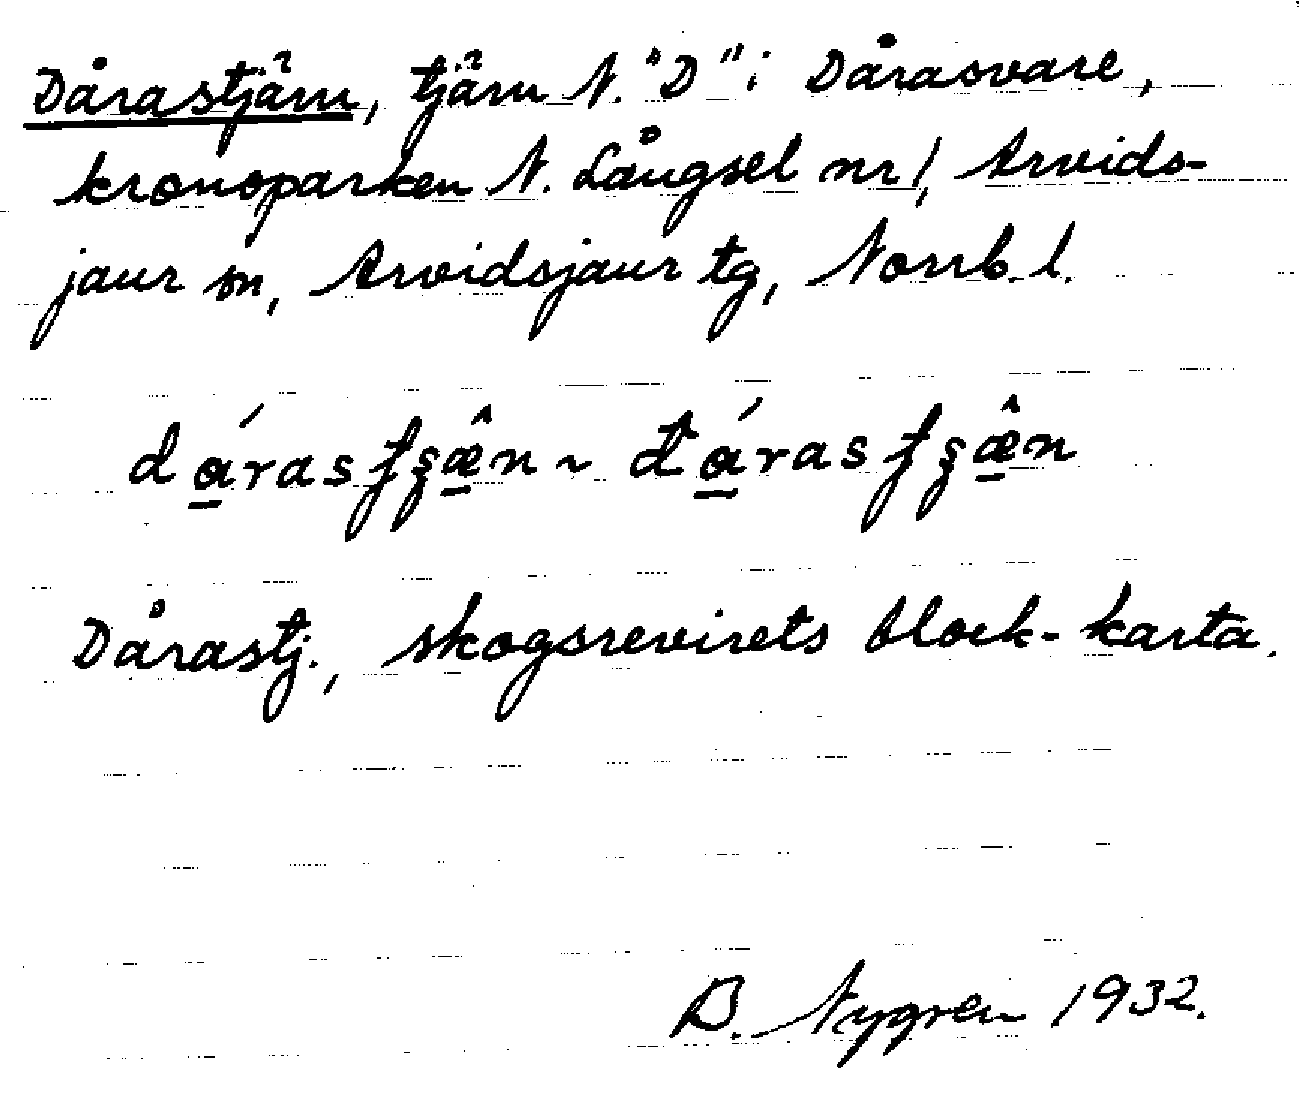 Dårastjärn, tjärn N. "D" i Dårasvare,
kronoparken N. Långsel nr 1, Arvids-
jaur sn, Arvidsjaur tg, Norrb. l.
dárasʃʂæ̂n ~ đárasʃʂæ̂n
Dårastj., skogsrevirets block-karta.
B. Nygren 1932.